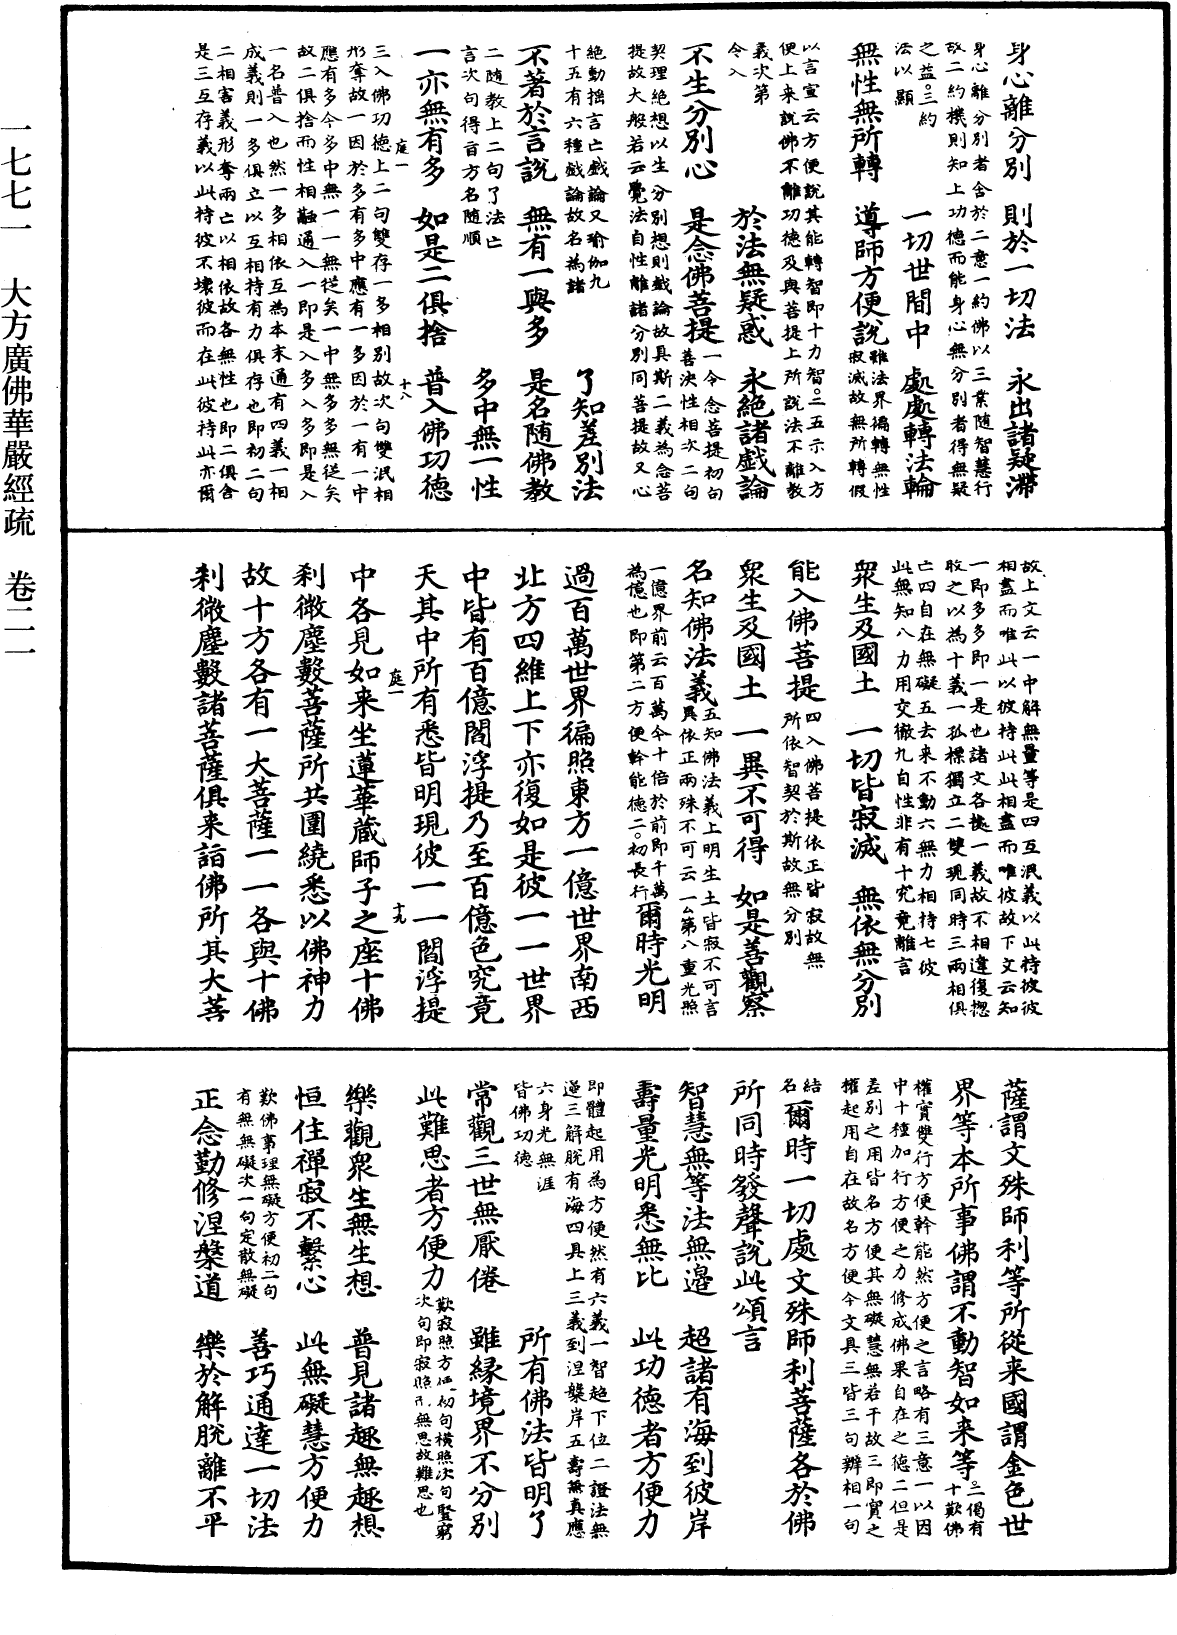 身心離分別　則於一切法　永出諸疑滯
身心離分別者含於二意一約佛以三業隨智慧行
故二約機則知上功德而能身心無分別者得無疑
之益○三約
法以顯
一切世間中　處處轉法輪
無性無所轉　導師方便說
雖法界徧轉無性
寂滅故無所轉假
以言宣云方便說其能轉智即十力智○二五示入方
便上来說佛不離功德及與菩提上所說法不離教
義次第
令入
於法無疑惑　永絕諸戲論
不生分別心　是念佛菩提
一令念菩提初句
善決性相次二句
契理絕想以生分別想則戲論故具斯二義為念菩
提故大般若云覺法自性離諸分別同菩提故又心
絕動搖言亡戲論又瑜伽九
十五有六種戲論故名為諸
了知差別法
不著於言說　無有一與多　是名隨佛教
二隨教上二句了法亡
言次句得旨方名隨順
多中無一性
一亦無有多　如是二俱捨　普入佛功德
庭一
十八
三入佛功德上二句雙存一多相別故次句雙泯相
形奪故一因於多有多中應有一多因於一有一中
應有多今多中無一一無從矣一中無多多無從矣
故二俱捨而性相融通入一即是入多入多即是入
一名普入也然一多相依互為本末通有四義一相
成義則一多俱立以互相持有力俱存也即初二句
二相害義形奪兩亡以相依故各無性也即二俱舍
是三互存義以此持彼不壞彼而在此彼持此亦爾
故上文云一中解無量等是四互泯義以此持彼彼
相盡而唯此以彼持此此相盡而唯彼故下文云知
一即多多即一是也諸文各據一義故不相違復揔
收之以為十義一孤標獨立二雙現同時三兩相俱
亡四自在無礙五去来不動六無力相持七彼
此無知八力用交徹九自性非有十究竟離言
眾生及國土　一切皆寂滅　無依無分別
能入佛菩提
四入佛菩提依正皆寂故無
所依智契於斯故無分別
眾生及國土　一異不可得　如是善觀察
名知佛法義
五知佛法義上明生土皆寂不可言
異依正兩殊不可云一△第八重光照
一億界前云百萬今十倍於前即千萬
為億也即第二方便幹能德二○初長行
爾時光明
過百萬世界徧照東方一億世界南西
北方四維上下亦復如是彼一一世界
中皆有百億閻浮提乃至百億色究竟
天其中所有悉皆明現彼一一閻浮提
庭一
十九
中各見如来坐蓮華藏師子之座十佛
剎微塵數菩薩所共圍繞悉以佛神力
故十方各有一大菩薩一一各與十佛
剎微塵數諸菩薩俱来詣佛所其大菩
薩謂文殊師利等所從来國謂金色世
界等本所事佛謂不動智如来等
○二偈有
十歎佛
權實雙行方便幹能然方便之言略有三意一以因
中十種加行方便之力修成佛果自在之德二但是
差別之用皆名方便其無礙慧無若干故三即實之
權起用自在故名方便今文具三皆三句辨相一句
結
名
爾時一切處文殊師利菩薩各於佛
所同時發聲說此頌言
智慧無等法無邊　超諸有海到彼岸
壽量光明悉無比　此功德者方便力
即體起用為方便然有六義一智超下位二證法無
邊三解脫有海四具上三義到涅槃岸五壽無真應
六身光無涯
皆佛功德
所有佛法皆明了
常觀三世無厭倦　雖緣境界不分別
此難思者方便力
歎寂照方便初句橫照次句豎窮
次句即寂照亦無思故難思也
樂觀眾生無生想　普見諸趣無趣想
恒住禪寂不繫心　此無礙慧方便力
歎佛事理無礙方便初二句
有無無礙次一句定散無礙
善巧通達一切法
正念勤修涅槃道　樂於解脫離不平
一七七一　大方廣佛華嚴經疏　卷二一